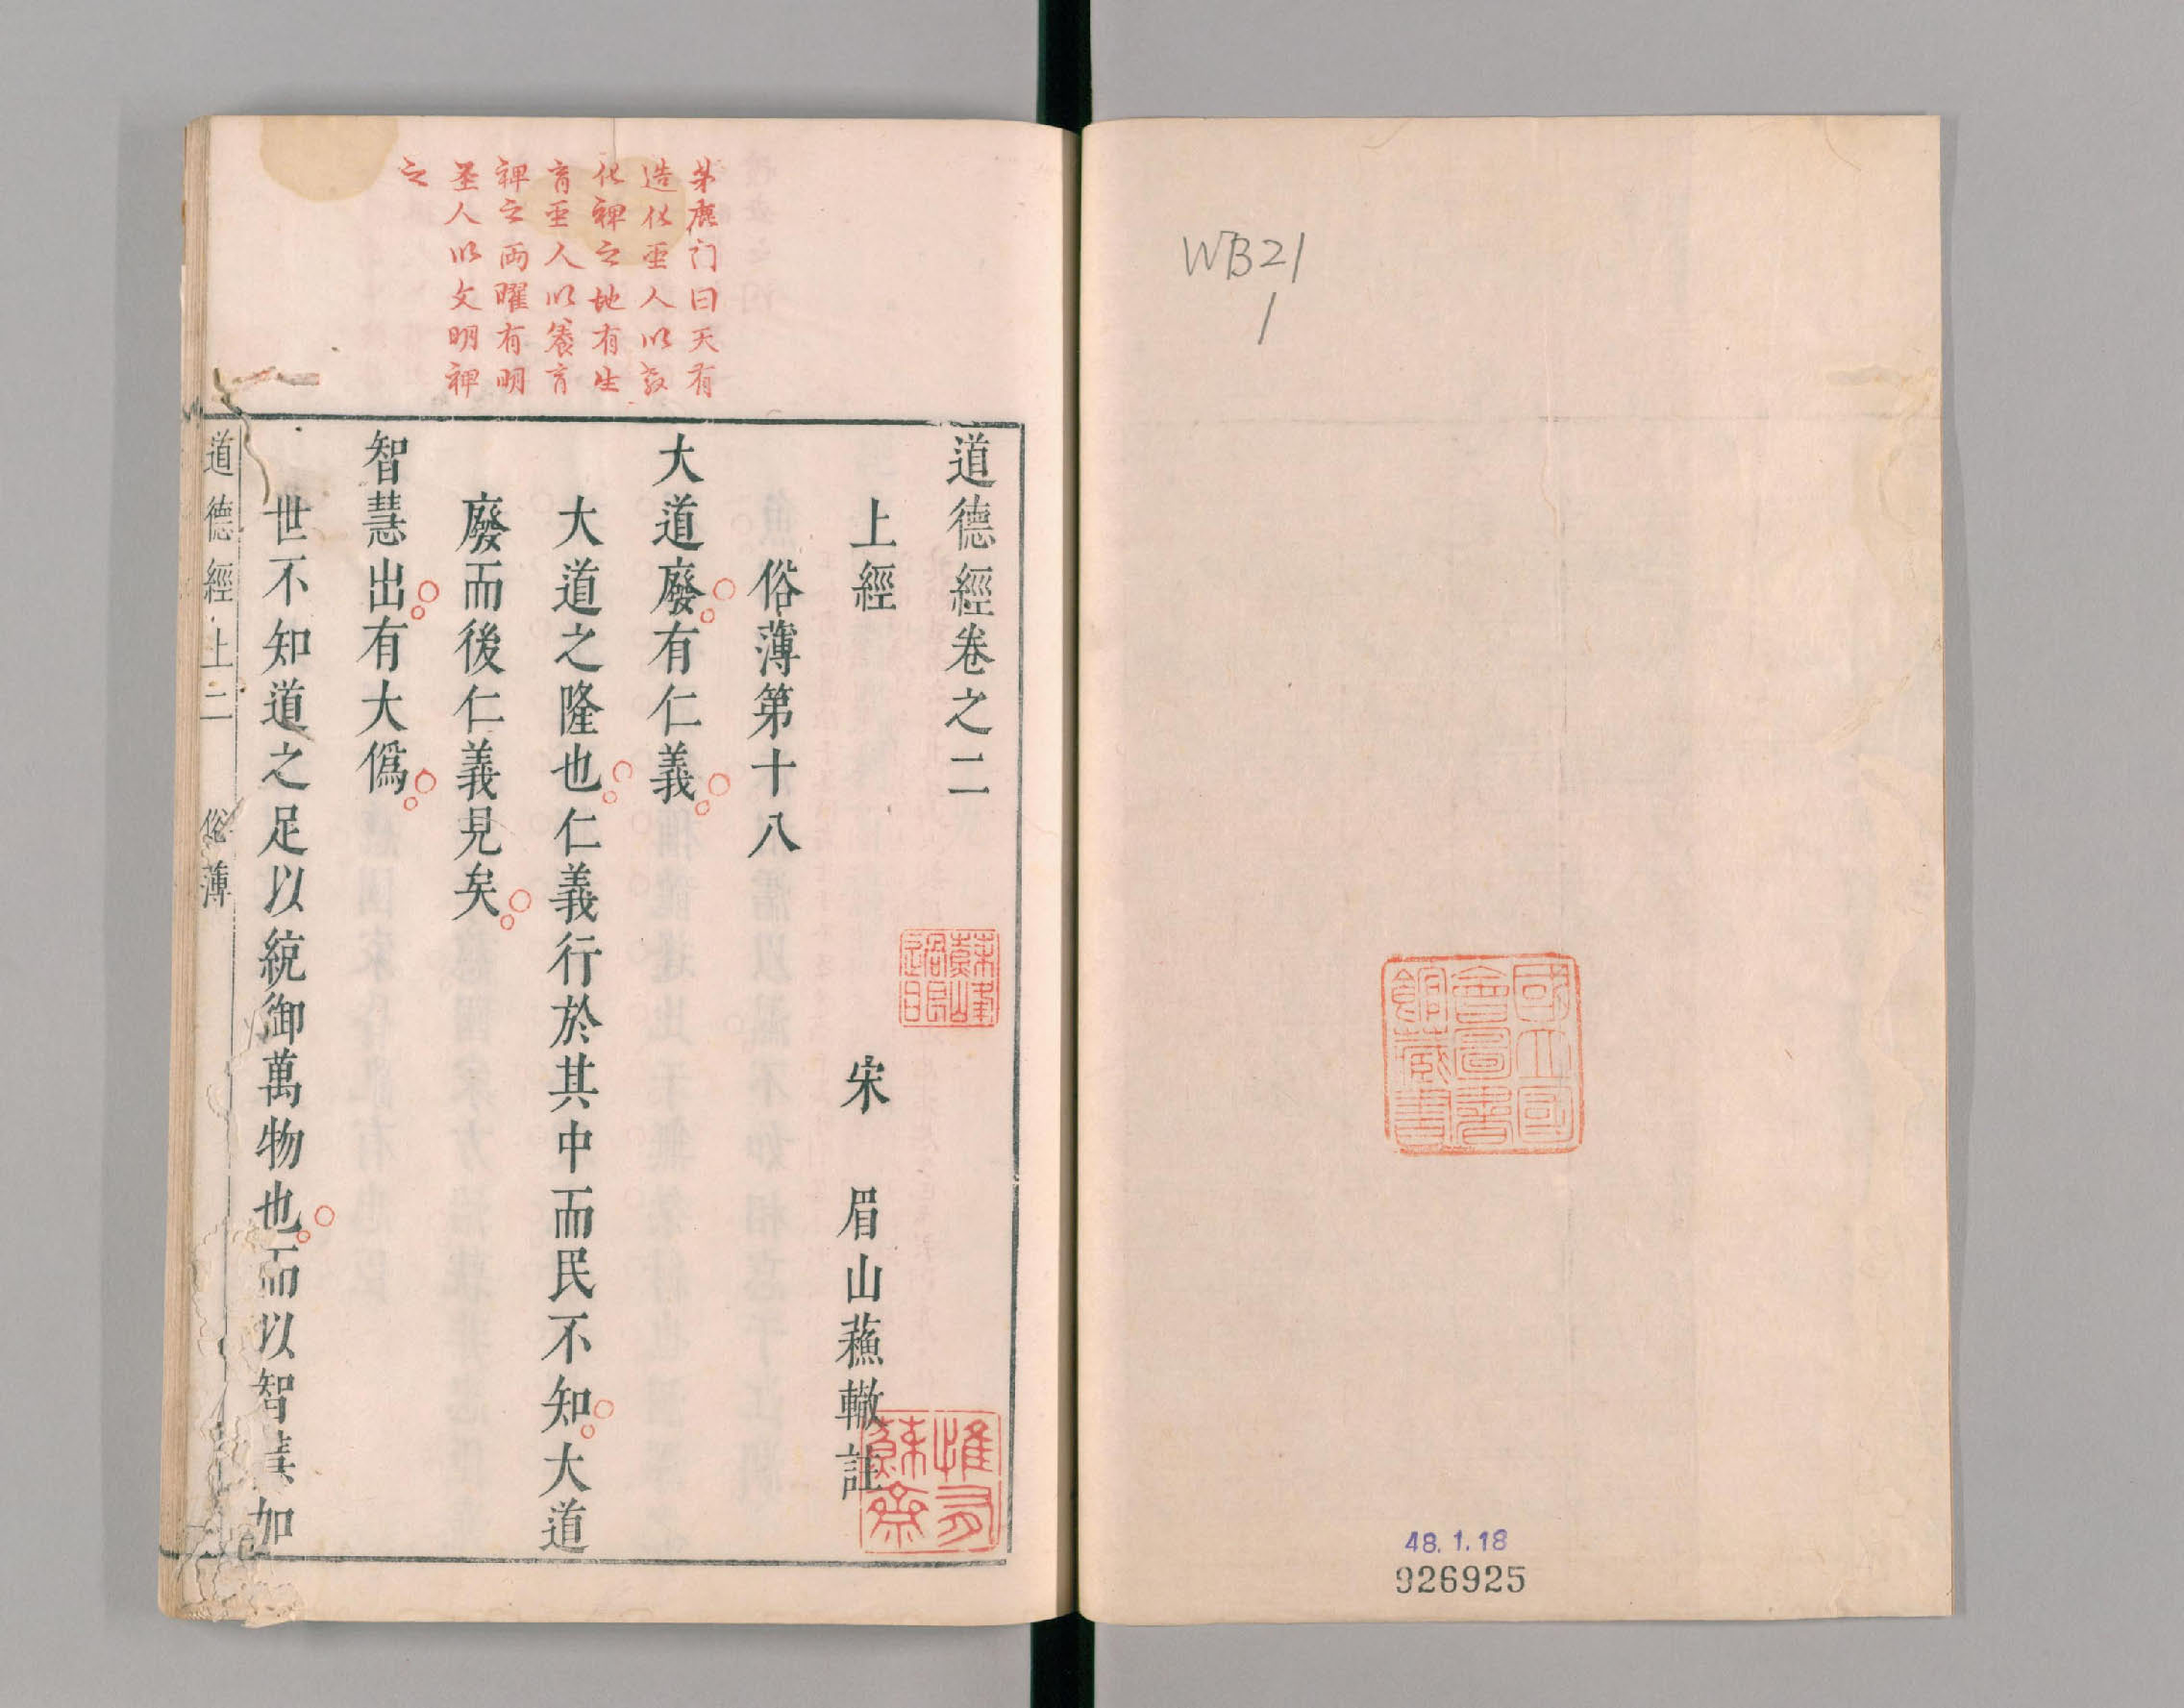 WB21
1
國立國
會圖書
館藏書
48.1.18
926925
茅鹿门曰天有
造化聖人以教
化裨之地有生
育聖人以養育
裨之両曜有明
聖人以文明裨
之
道德經卷之二
上經
宋 眉山蘓轍註
俗薄第十八
大道廢有仁義
大道之隆也仁義行於其中而民不知大道
廢而後仁義見矣
智慧出有大僞
世不知道之足以統御萬物也而以智慧加
道德經上二 俗薄
蘇峰
惟有
蘇齋